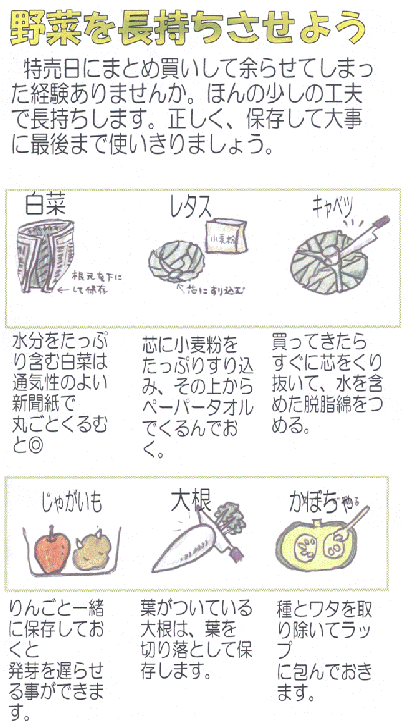 野菜を長持ちさせよう
特売日にまとめ買いして余らせてしまっ
た経験ありませんか。ほんの少しの工夫
で長持ちします。正しく、保存して大事
に最後まで使いきりましょう。
白菜
根元を下に
して保存
水分をたっぷ
り含む白菜は
通気性のよい
新聞紙で
丸ごとくるむ
と◎
レタス
小麦粉
芯にすり込む
芯に小麦粉を
たっぷりすり込
み、その上から
ペーパータオル
でくるんでお
く。
キャベツ
買ってきたら
すぐに芯をくり
抜いて、水を含
めた脱脂綿をつ
める。
じゃがいも
りんごと一緒
に保存してお
くと
発芽を遅らせ
る事ができま
す。
大根
葉がついている
大根は、葉を
切り落として保
存します。
かぼちゃ
種とワタを取
り除いてラッ
プ
に包んでおき
ます。